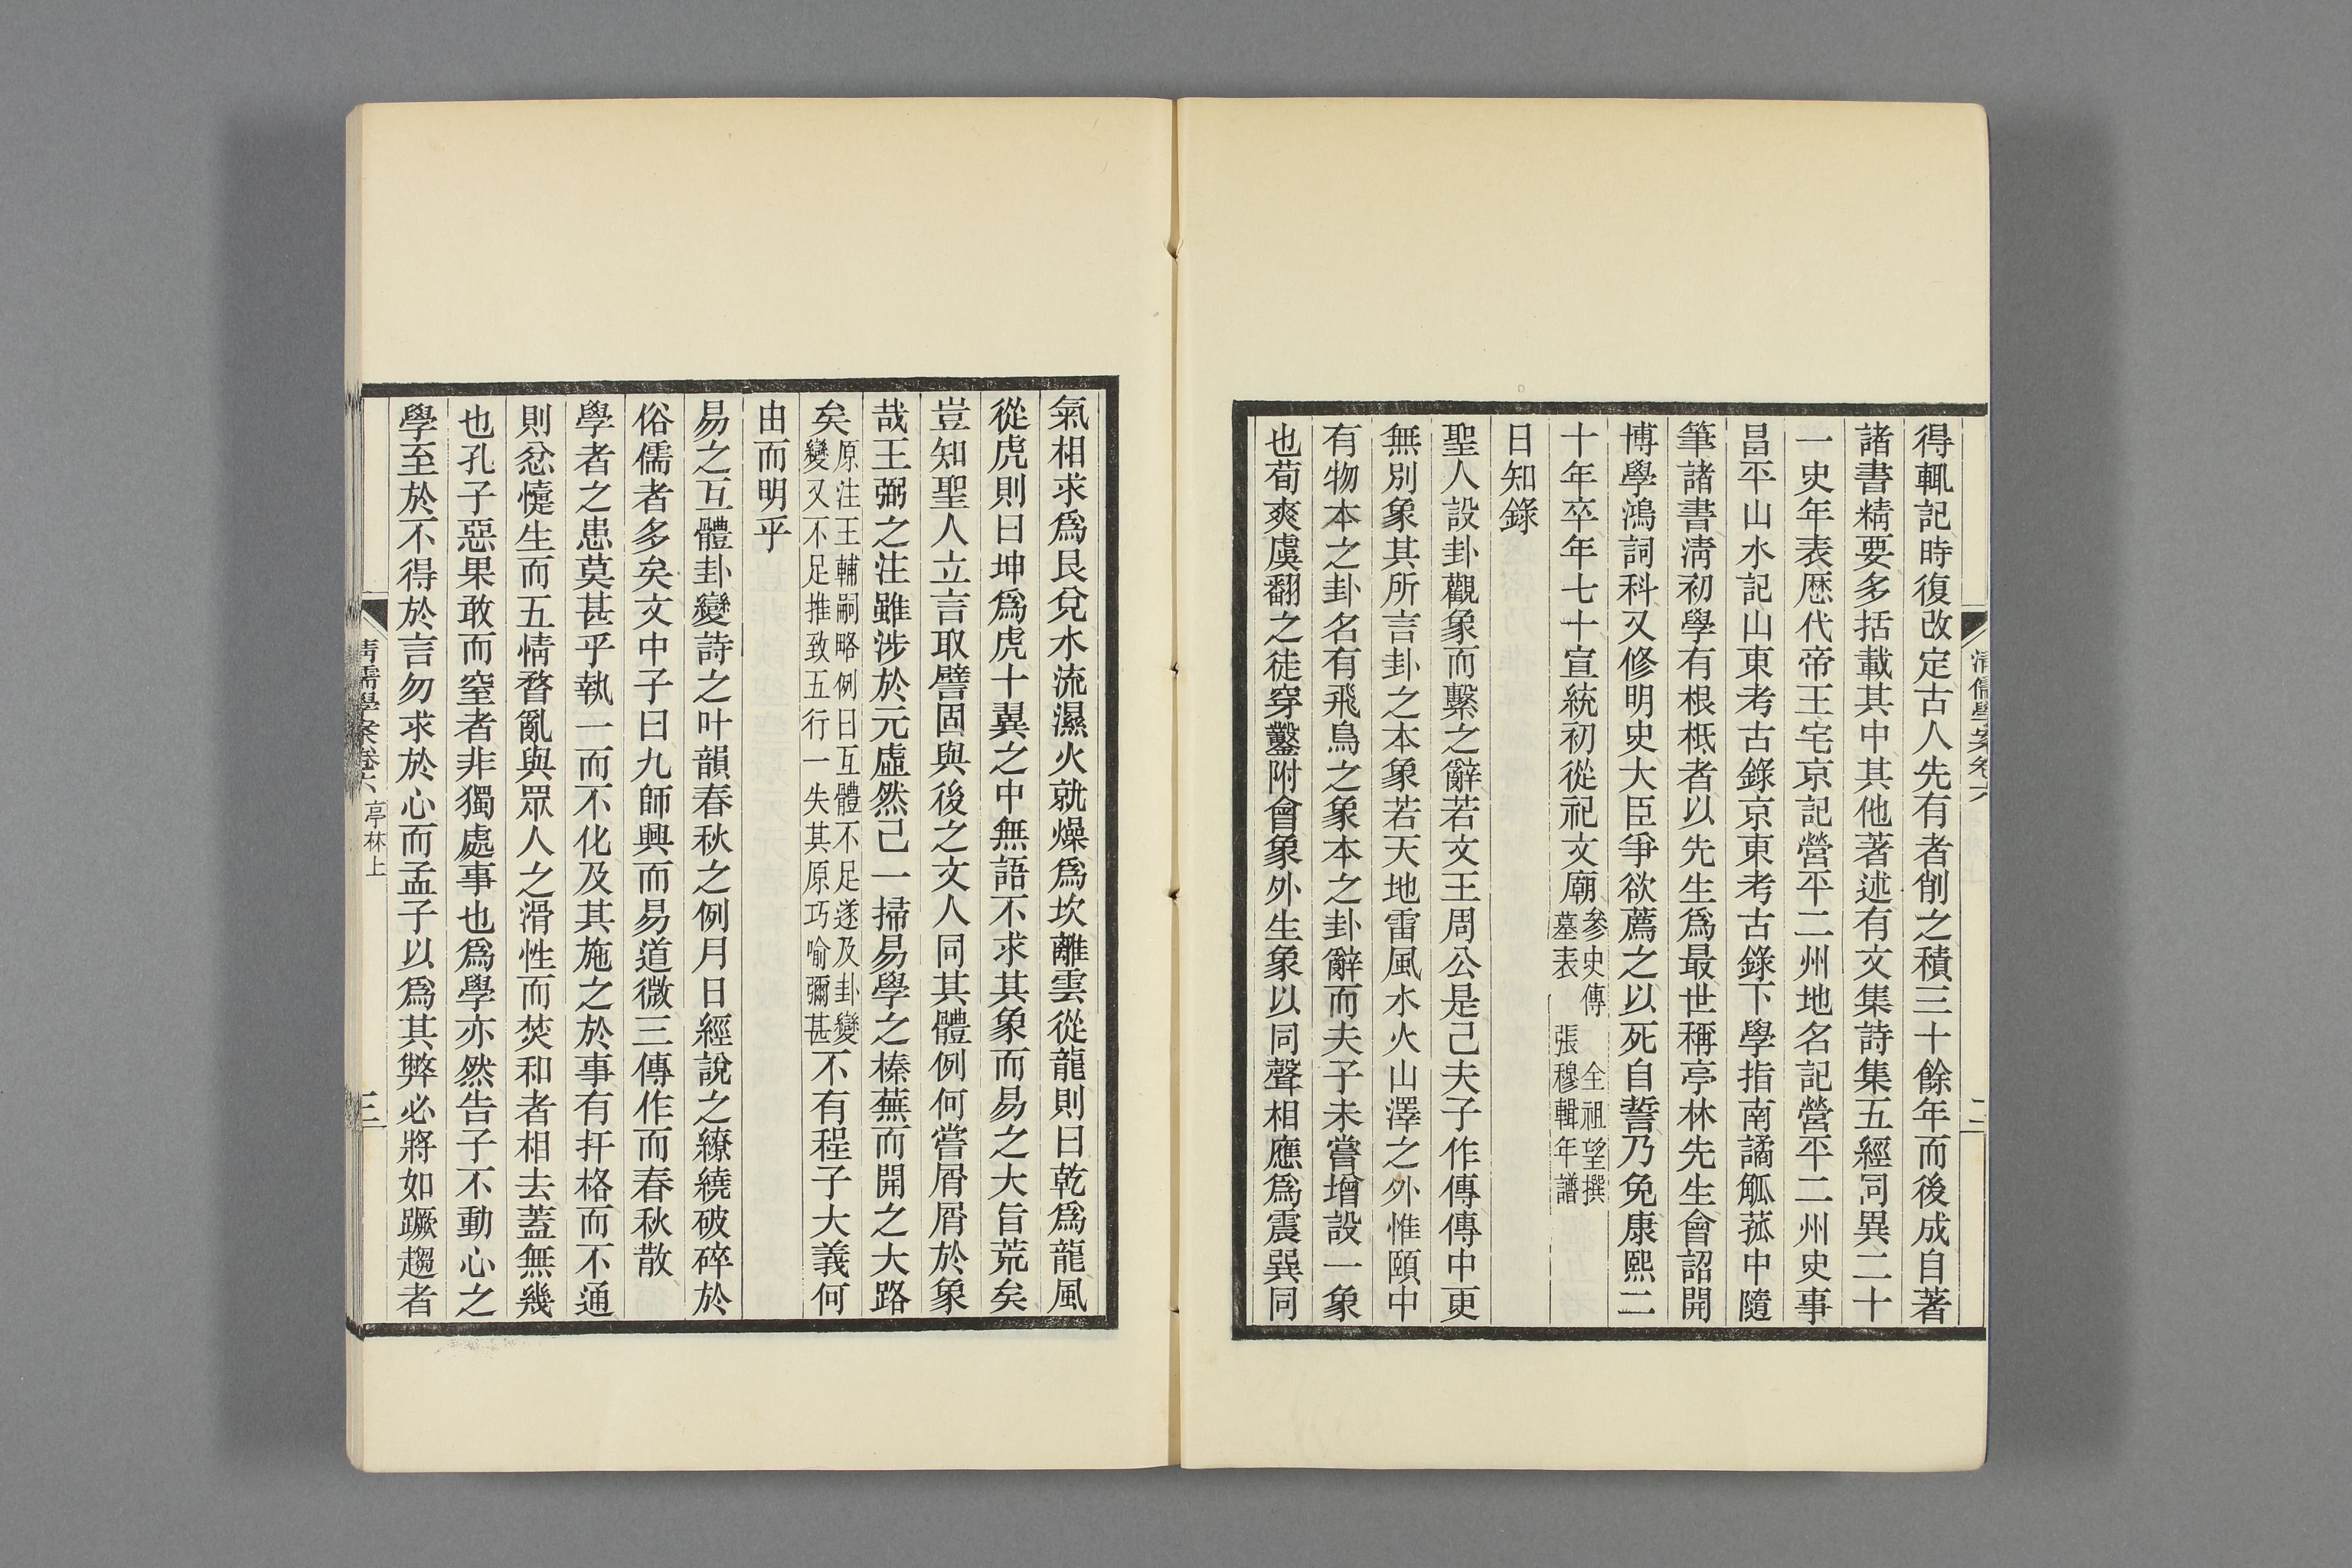 得輒記時復改定古人先有者削之積三十餘年而後成自著
諸書精要多括載其中其他著述有文集詩集五經同異二十
一史年表歷代帝王宅京記營平二州地名記營平二州史事
昌平山水記山東考古錄京東考古錄下學指南譎觚菰中隨
筆諸書清初學有根柢者以先生爲最世稱亭林先生會詔開
博學鴻詞科又修明史大臣爭欲薦之以死自誓乃免康熙二
十年卒年七十宣統初從祀文廟參史傳 全祖望撰墓表 張穆輯年譜
日知錄
聖人設卦觀象而繫之辭若文王周公是已夫子作傳傳中更
無別象其所言卦之本象若天地雷風水火山澤之外惟頤中
有物本之卦名有飛鳥之象本之卦辭而夫子未嘗增設一象
也荀爽虞翻之徒穿鑿附會象外生象以同聲相應爲震巽同
氣相求爲艮兌水流濕火就燥爲坎離雲從龍則曰乾爲龍風
從虎則曰坤爲虎十翼之中無語不求其象而易之大旨荒矣
豈知聖人立言取譬固與後之文人同其體例何嘗屑屑於象
哉王弼之注雖涉於元虛然己一掃易學之榛蕪而開之大路
矣原注王輔嗣略例曰互體不足遂及卦變變又不足推致五行一失其原巧喻彌甚不有程子大義何
由而明乎
易之互體卦變詩之叶韻春秋之例月日經說之繚繞破碎於
俗儒者多矣文中子曰九師興而易道微三傳作而春秋散
學者之患莫甚乎執一而不化及其施之於事有扞格而不通
則忿懥生而五情瞀亂與眾人之滑性而焚和者相去蓋無幾
也孔子惡果敢而窒者非獨處事也爲學亦然告子不動心之
學至於不得於言勿求於心而孟子以爲其弊必將如蹶趨者
清儒學案卷六 亭林上 三